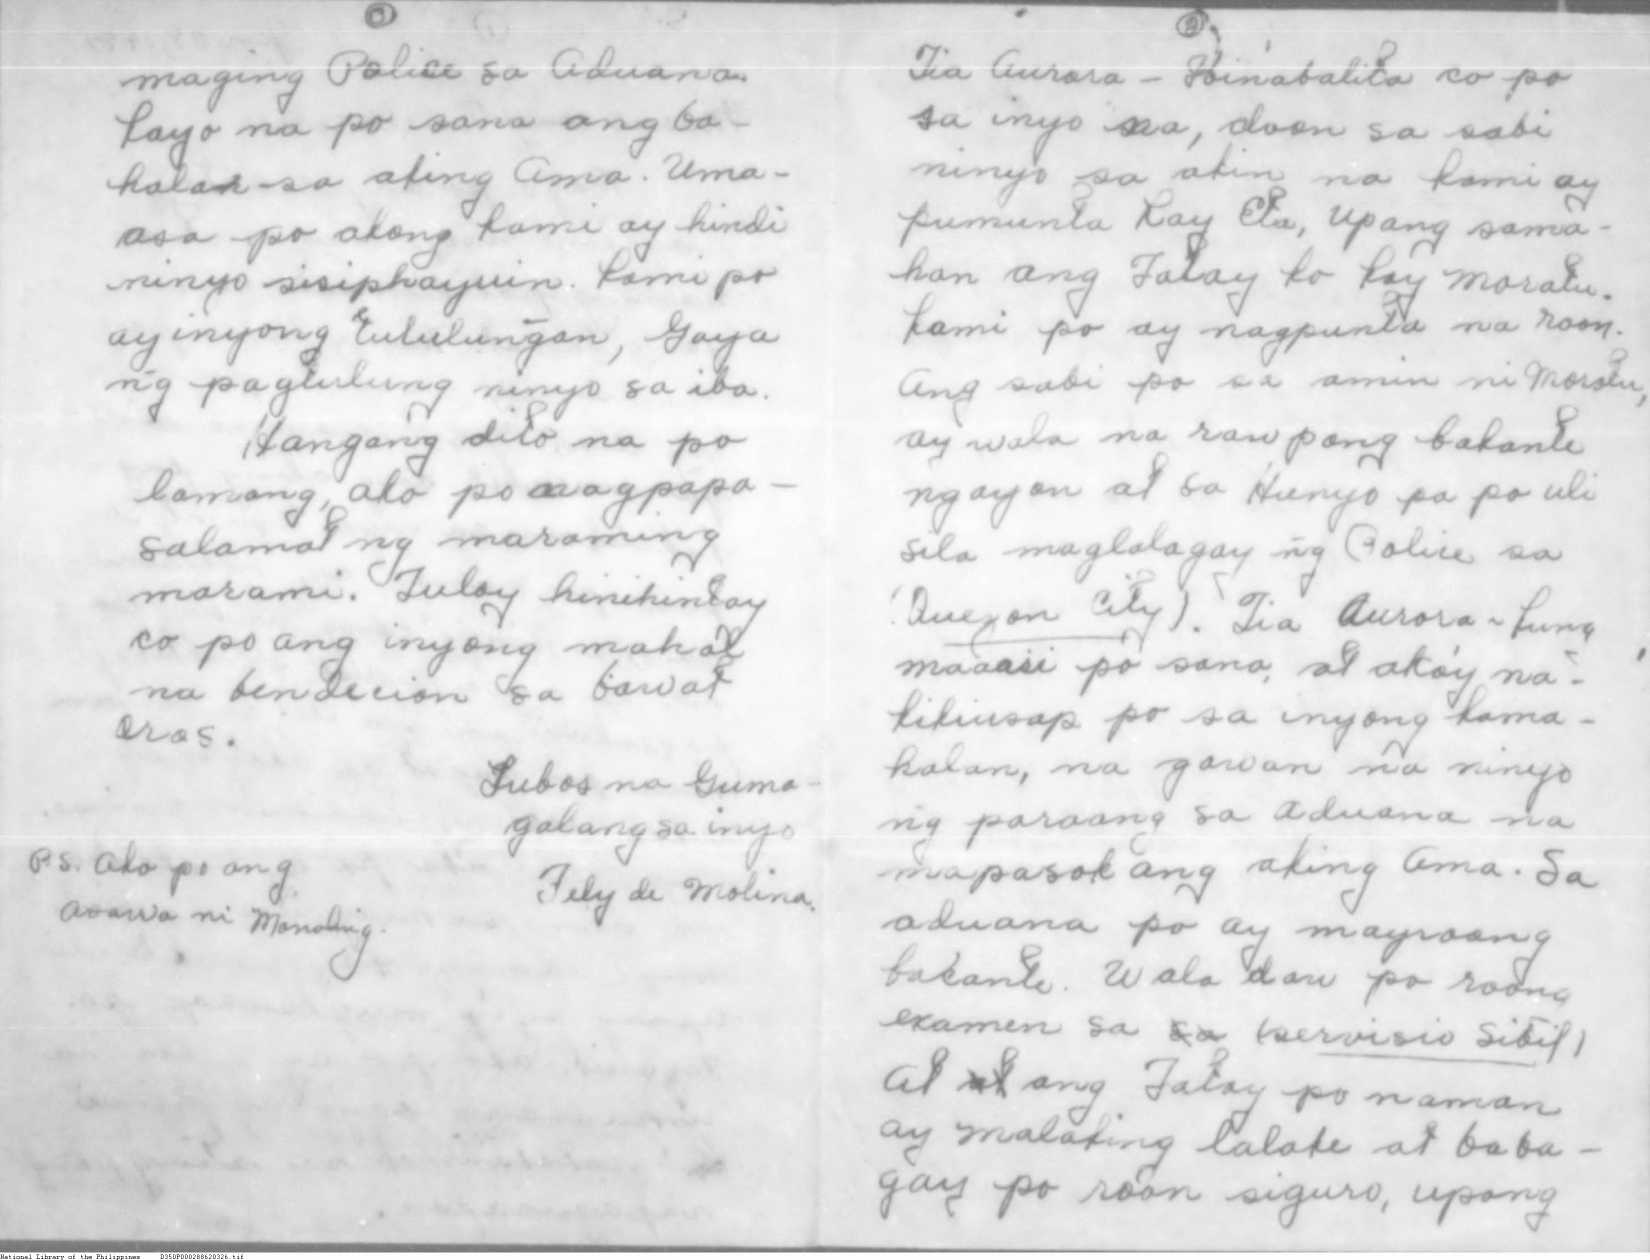 maging Police sa Aduana.
Kayo na po sana ang ba-
halan sa aking Ama. Uma-
asa po akong kami ay hindi
ninyo sisiphayuin. Kami po
ay inyong tutulungan, Gaya
ng pagtulung ninyo sa iba.
Hangang dito na po
lamang, ako po nagpapa-
salamat ng maraming
marami. Tuloy hinihintay
co po ang inyong mahal
na bendecion sa bawat
oras.
Lubos na Guma-
galang sa inyo
Fely de Molina.
P.S. Ako po ang
asawa ni Manoling.
②
Tia Aurora - Ibinabalita co po
sa inyo na, doon sa sabi
ninyo sa akin na kami ay
pumunta kay Eta, upang sama-
han ang Tatay ko kay Moratu.
Kami po ay nagpunta na roon.
Ang sabi po sa amin ni Moratu,
ay wala na raw pong bakante
ngayon at sa Hunyo pa po uli
sila maglalagay ng Police sa
(Quezon City). Tia Aurora - Kung
maaari po sana, at ako'y na-
kikiusap po sa inyong kama-
halan, na gawan na ninyo
ng paraang sa Aduana na
mapasok ang aking Ama. Sa
aduana po ay mayroong
bakante. Wala daw po roong
examen sa sa (servisio sibil)
At at ang Tatay po naman
ay malaking lalake at baba-
gay po roon siguro, upang